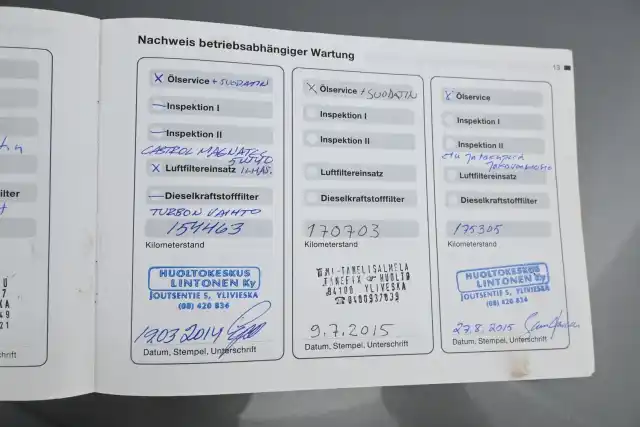 Nachweis betriebsabhängiger Wartung
13
iter
chrift
X Ölservice + SUODATIN
— Inspektion I
— Inspektion II
CASTROL MAGNATEC
5W40
X Luftfiltereinsatz ILMAS.
— Dieselkraftstofffilter
TURBON VAIHTO
154463
Kilometerstand
HUOLTOKESKUS
LINTONEN Ky
JOUTSENTIE 5, YLIVIESKA
(08) 420 836
19.03 2014
Datum, Stempel, Unterschrift
X Ölservice + SUODATIN
Inspektion I
Inspektion II
Luftfiltereinsatz
Dieselkraftstofffilter
170703
Kilometerstand
TMI-TANELISALMELA
FINEFIX HUOLTO
84100 YLIVIESKA
☎0400937039
9.7.2015
Datum, Stempel, Unterschrift
X Ölservice
Inspektion I
Inspektion II
Luftfiltereinsatz
Dieselkraftstofffilter
175305
Kilometerstand
HUOLTOKESKUS
LINTONEN Ky
JOUTSENTIE 5, YLIVIESKA
(08) 420 836
27.8.2015
Datum, Stempel, Unterschrift